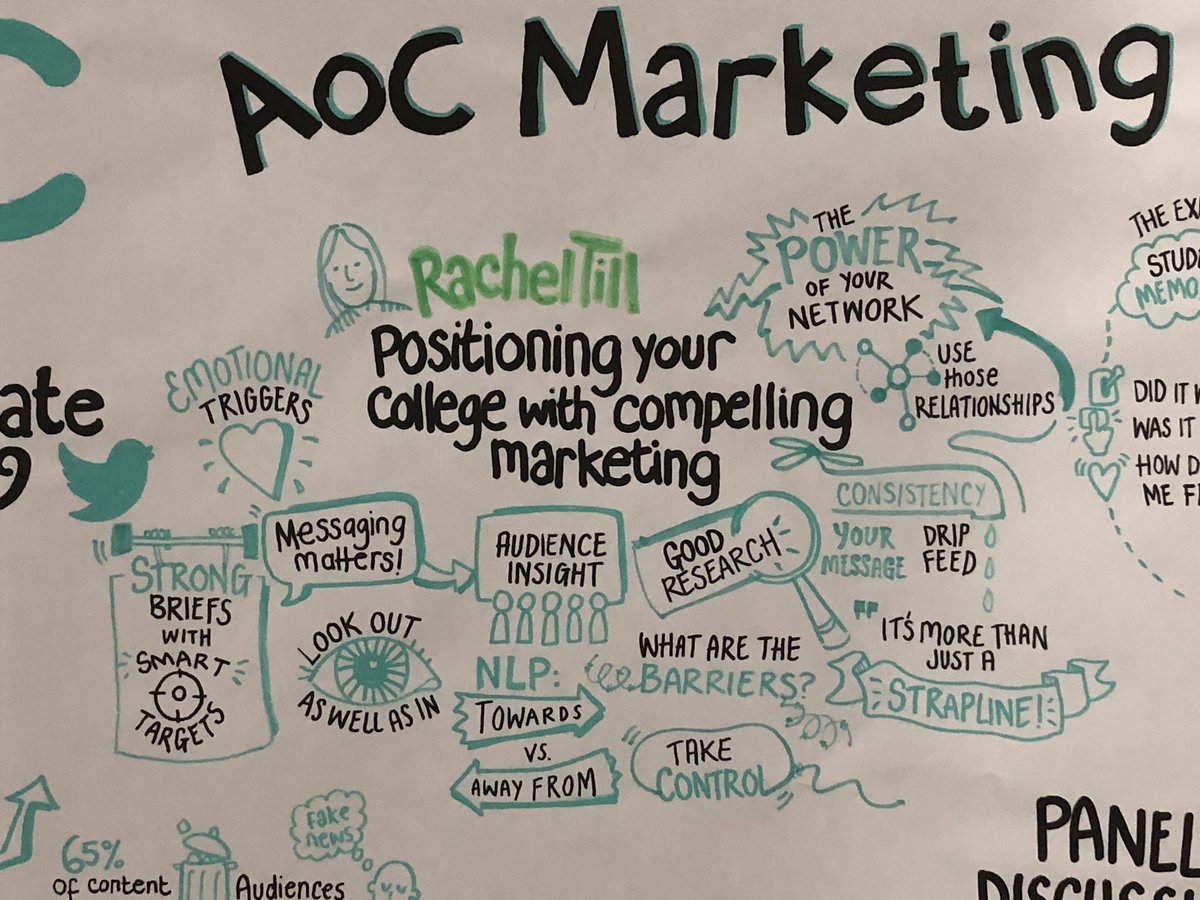 AoC Marketing
Rachel Till
Positioning your
college with compelling
marketing
THE
POWER
OF YOUR
NETWORK
USE
those
RELATIONSHIPS
EMOTIONAL
TRIGGERS
Messaging
matters!
STRONG
BRIEFS
WITH
SMART
TARGETS
LOOK OUT
AS WELL AS IN
AUDIENCE
INSIGHT
NLP:
TOWARDS
VS.
AWAY FROM
GOOD
RESEARCH
WHAT ARE THE
BARRIERS?
TAKE
CONTROL
CONSISTENCY
YOUR
MESSAGE
DRIP
FEED
"IT'S MORE THAN
JUST A
STRAPLINE!
ate
THE
DID IT
WAS IT
HOW
ME
65%
of content
Fake
news
Audiences
PANEL